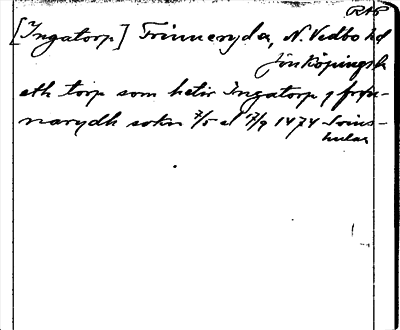 RAP
[Ingatorp] Frinnaryda, N. Vedbo hd
Jönköpings l.
eth torp som hetir Ingatorp j
narydh sokn 7/5 el 17/9 1474